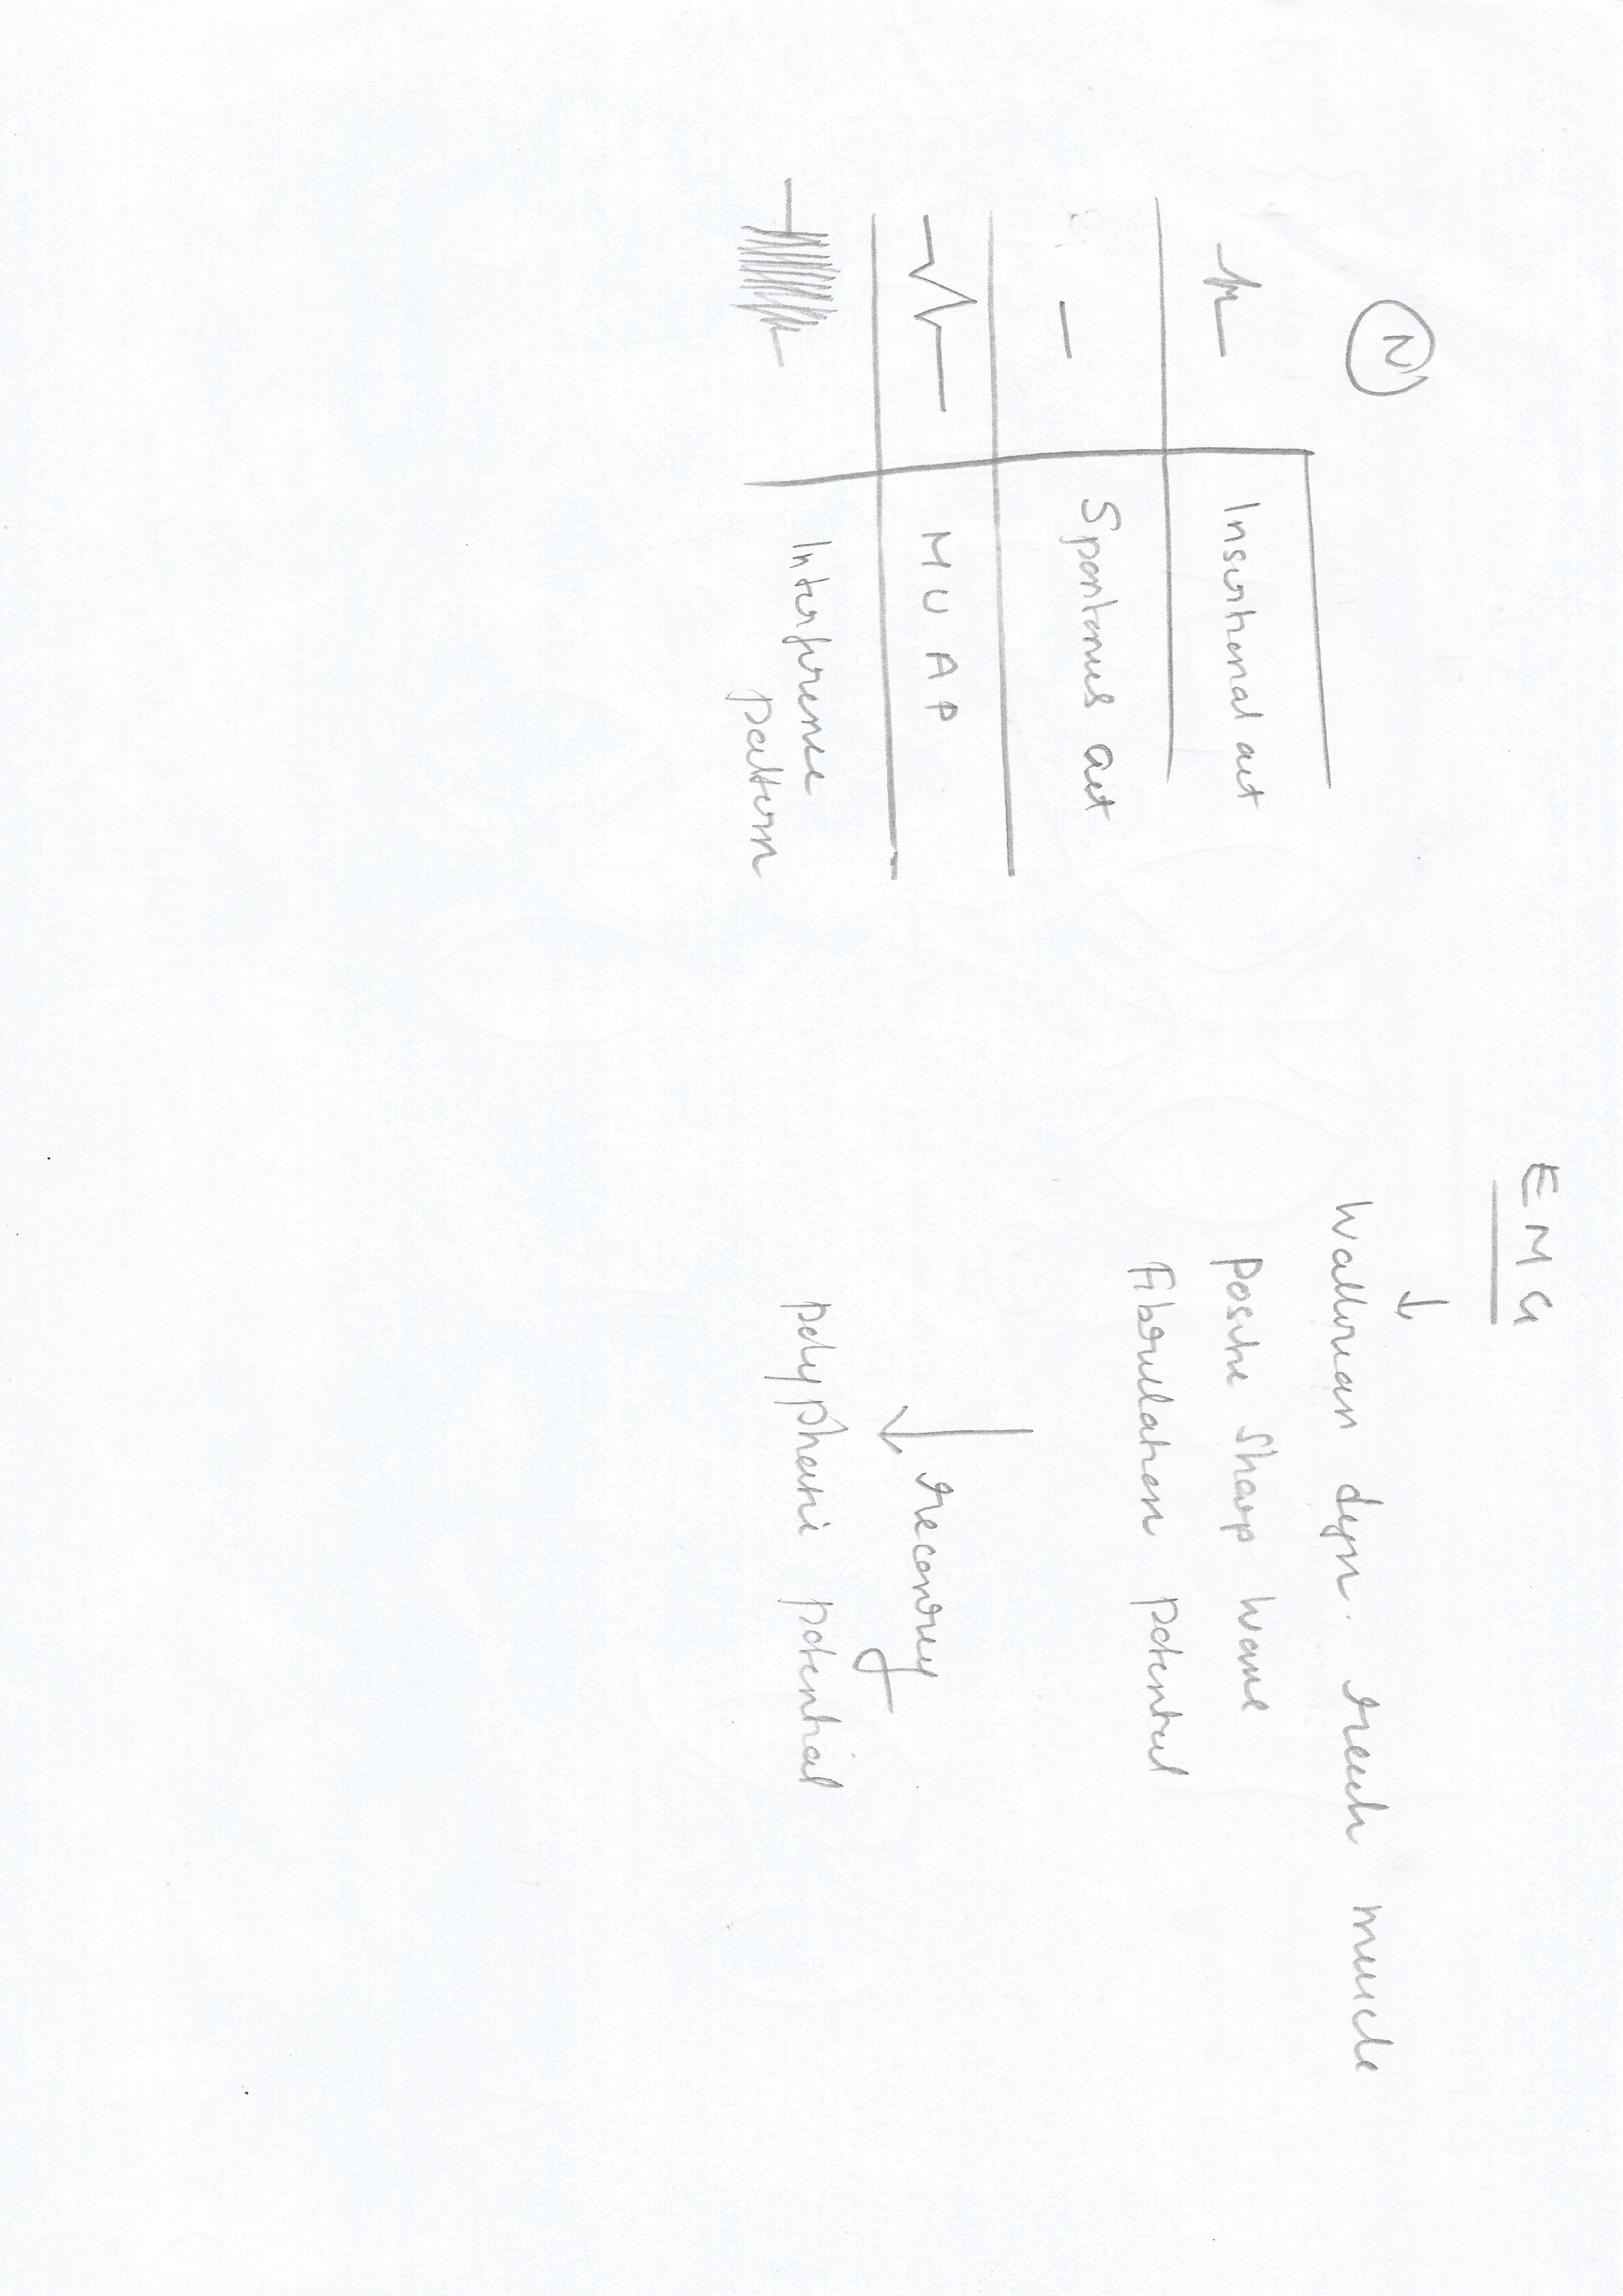 EMG
↓
Wallerian degn. reach muscle
Positive Sharp Wave
Fibrillation potential
↓ recovery
polyphasic potential
N
Insertional act
Spontaneous act
MUAP
Interference
pattern